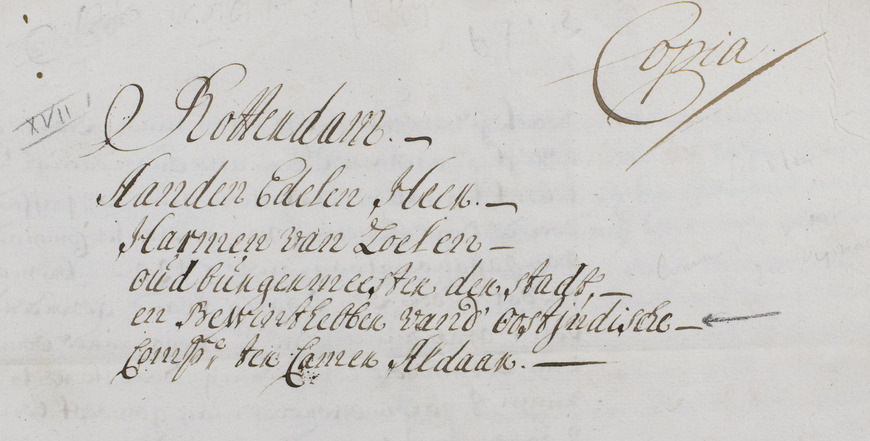 Copia
XVII
Rotterdam.
Aanden Edelen Heer.
Harmen van Zoelen
oudburgermeester der stadt,
en Bewinthebber vand' oostjndische
Compe. ter Camer Aldaar.